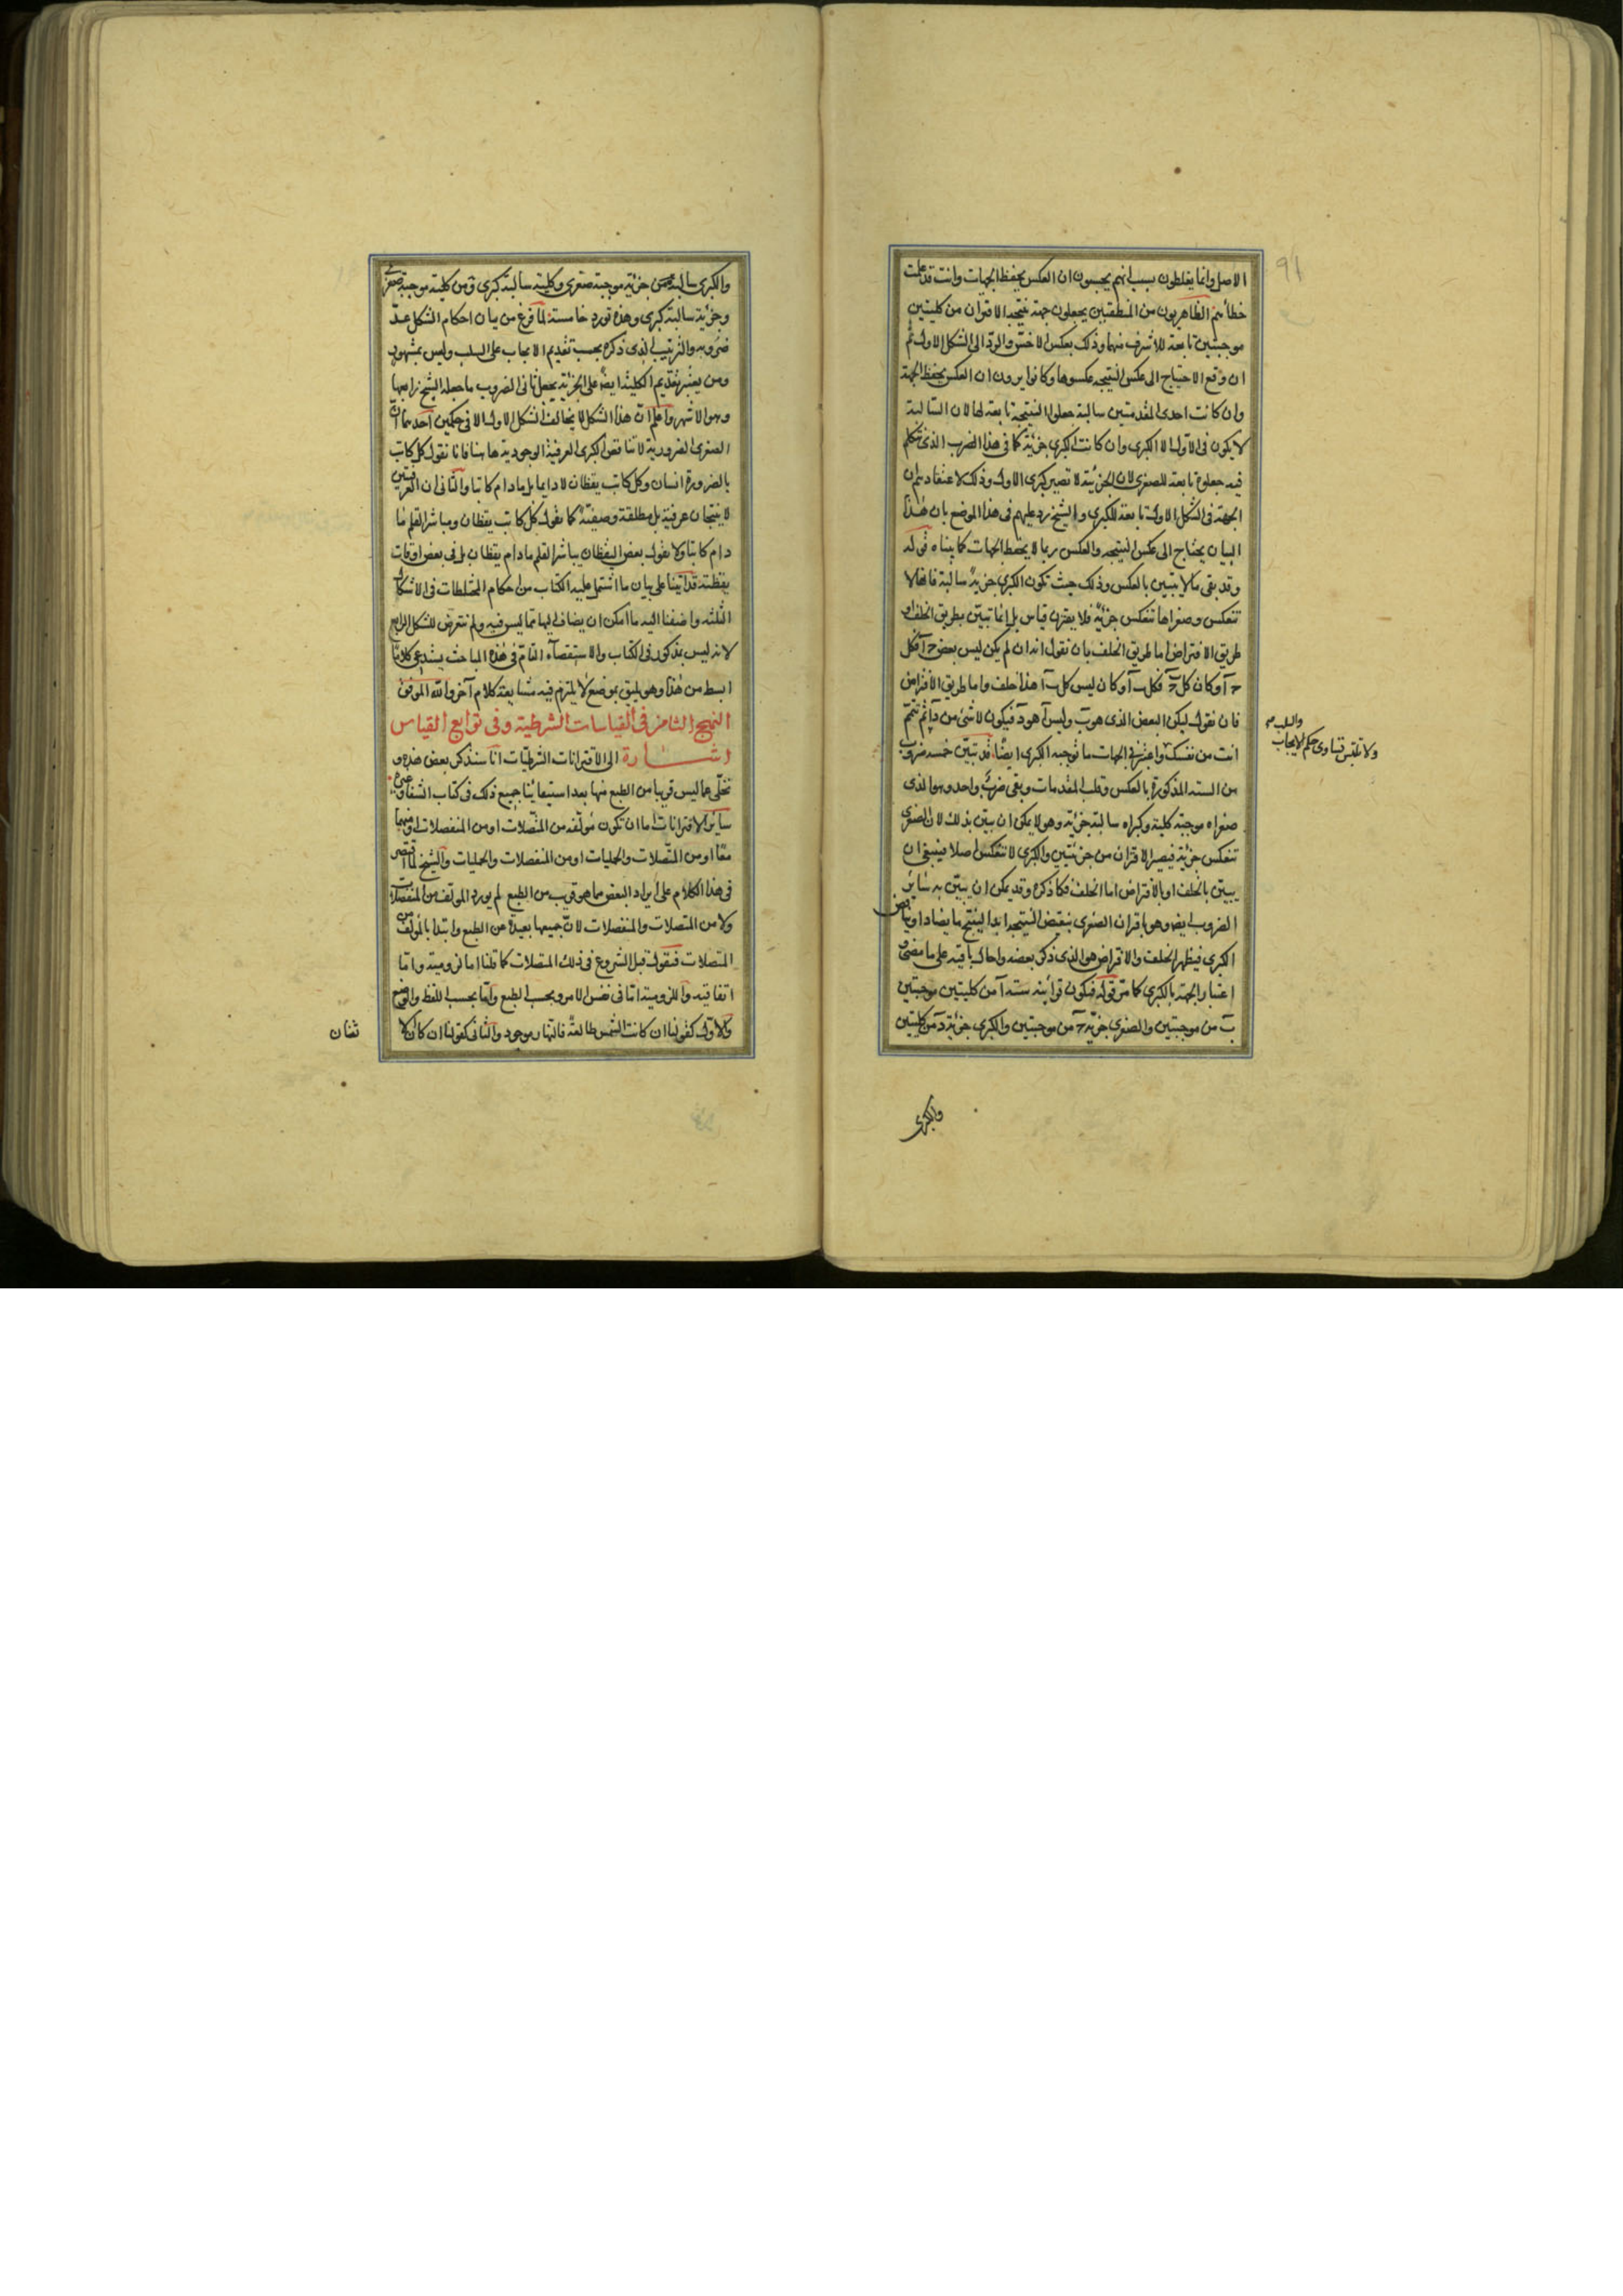 91
الاصل وانما يغلطون بسبب انهم يحسبون ان العكس يحفظ الجهات وانت قد علمت
خطأهم الظاهريون من المنطقيين يجعلون جهة نتيجة الاقتران من كليتين
موجبتين تابعة للاشرف منهما وذلك بعكس الاخس والرد الى الشكل الاول ثم
ان وقع الاحتياج الى عكس النتيجه عكسوها وكانوا يرون ان العكس يحفظ الجهة
وان كانت احدى المقدمتين سالبة جعلوا النتيجة تابعة لها لان السالبة
لا يكون فى الاول الا الكبرى وان كانت الكبرى جزئية كما فى هذا الضرب الذى نتكلم
فيه جعلوها تابعة للصغرى لان الجزئية لا تصير كبرى الاول وذلك لاعتقادهم ان
الجهة فى الشكل الاول تابعة للكبرى والشيخ رد عليهم فى هذا الموضع بان هذا
البيان يحتاج الى عكس النتيجه والعكس ربما لا يحفظ الجهات كما بيناه قوله
وقد بقى ما لا يتبين بالعكس وذلك حيث تكون الكبرى جزئية سالبة فانها لا
تنعكس وصغراها تنعكس جزئية فلا يقترن قياس بل انما تبين بطريق الخلف او
طريق الافتراض اما طريق الخلف بان نقول انه ان لم يكن ليس بعض ج آ فكل
ج آ وكان كل ب ج فكل ب آ وكان ليس كل ب آ هذا خلف واما طريق الافتراض
فان نقول ليكن البعض الذى هو ب وليس آ هو د فيكون لا شئ من د آ ثم تتم
انت من نفسك واعتبر فى الجهات ما توجبه الكبرى ايضا قد تبين خمسه ضروب
من السته المذكورة بالعكس وقلب المقدمات وبقى ضرب واحد وهو الذى
صغراه موجبة كلية وكبراه سالبة جزئية وهو لا يمكن ان يبين بذلك لان الصغرى
تنعكس جزئية فيصير الاقتران من جزئيتين والكبرى لا تنعكس اصلا فينبغى ان
يبين بالخلف او بالافتراض اما الخلف فكما ذكره وقد يمكن ان يبين به سائر
الضروب ايضا وهو باقتران الصغرى بنقيض النتيجه ابدا لينتج ما يضاد او يناقض
الكبرى فيظهر الخلف والافتراض هو الذى ذكر بعضه واحال باقيه على ما مضى و
اعتبار الجهة بالكبرى كما مر قوله فيكون قرائنه ستة آ من كليتين موجبتين
ب من موجبتين والصغرى جزئية ج من موجبتين والكبرى جزئية د من كليتين
والسلب
ولا تلتبس تساوى حكم الايجاب
والكبرى
والكبرى سالبة ه من جزئية موجبة صغرى وكلية سالبة كبرى و من كلية موجبة صغرى
وجزئية سالبة كبرى وهذه تورد خامسة لما فرغ من بيان احكام الشكل عدّ
ضروبه والترتيب الذى ذكره بحسب تقديم الايجاب على السلب وليس بمشهور
ومن يعتبر تقديم الكلية ايضا على الجزئية يجعل ثانى الضروب ما جعله الشيخ رابعها
وهو الاشهر واعلم ان هذا الشكل لا يخالف الشكل الاول الا فى حكمين احدهما ان
الصغرى الضرورية لا تناقض الكبرى العرفية الوجودية هاهنا فانا نقول كل كاتب
بالضرورة انسان وكل كاتب يقظان لا دايما بل ما دام كاتبا والثانى ان العرفيتين
لا ينتجان عرفية بل مطلقة وصفية كما نقول كل كاتب يقظان ومباشر القلم ما
دام كاتبا ولا نقول بعض اليقظان يباشر القلم ما دام يقظان بل فى بعض اوقات
يقظته قد اتينا على بيان ما اشتمل عليه الكتاب من احكام المختلطات فى الاشكال
الثلثه واضفنا اليه ما امكن ان يضاف اليها مما ليس فيه ولم نتعرض للشكل الرابع
لانه ليس بمذكور فى الكتاب والاستقصاء التام فى هذه المباحث يستدعى كلاما
ابسط من هذا وهو يليق بموضع لا يلتزم فيه متابعة كلام آخر والله الموفق
النهج الثامن فى القياسات الشرطية وفى توابع القياس
اشارة الى الاقترانات الشرطيات انا سنذكر بعض هذه و
نخلى عما ليس قريبا من الطبع منها بعد استيفائنا جميع ذلك فى كتاب الشفا وغيره
سائر الاقترانات اما ان تكون مؤلفه من المتصلات او من المنفصلات او منهما
معا او من المتصلات والحمليات او من المنفصلات والحمليات والشيخ لما اقتصر
فى هذا الكلام على ايراد البعض مما هو قريب من الطبع لم يورد المولف من المنفصلات
ولا من المتصلات والمنفصلات لان جميعها بعيدة عن الطبع وابتدا بالمؤلف من
المتصلات فنقول قبل الشروع فى ذلك المتصلات كما قلنا اما لزومية واما
اتفاقية واللزومية اما فى نفس الامر وبحسب الطبع واما بحسب اللفظ والوضع
والاول كقولنا ان كانت الشمس طالعة فالنهار موجود والثانى كقولنا ان كان الا
ثنان